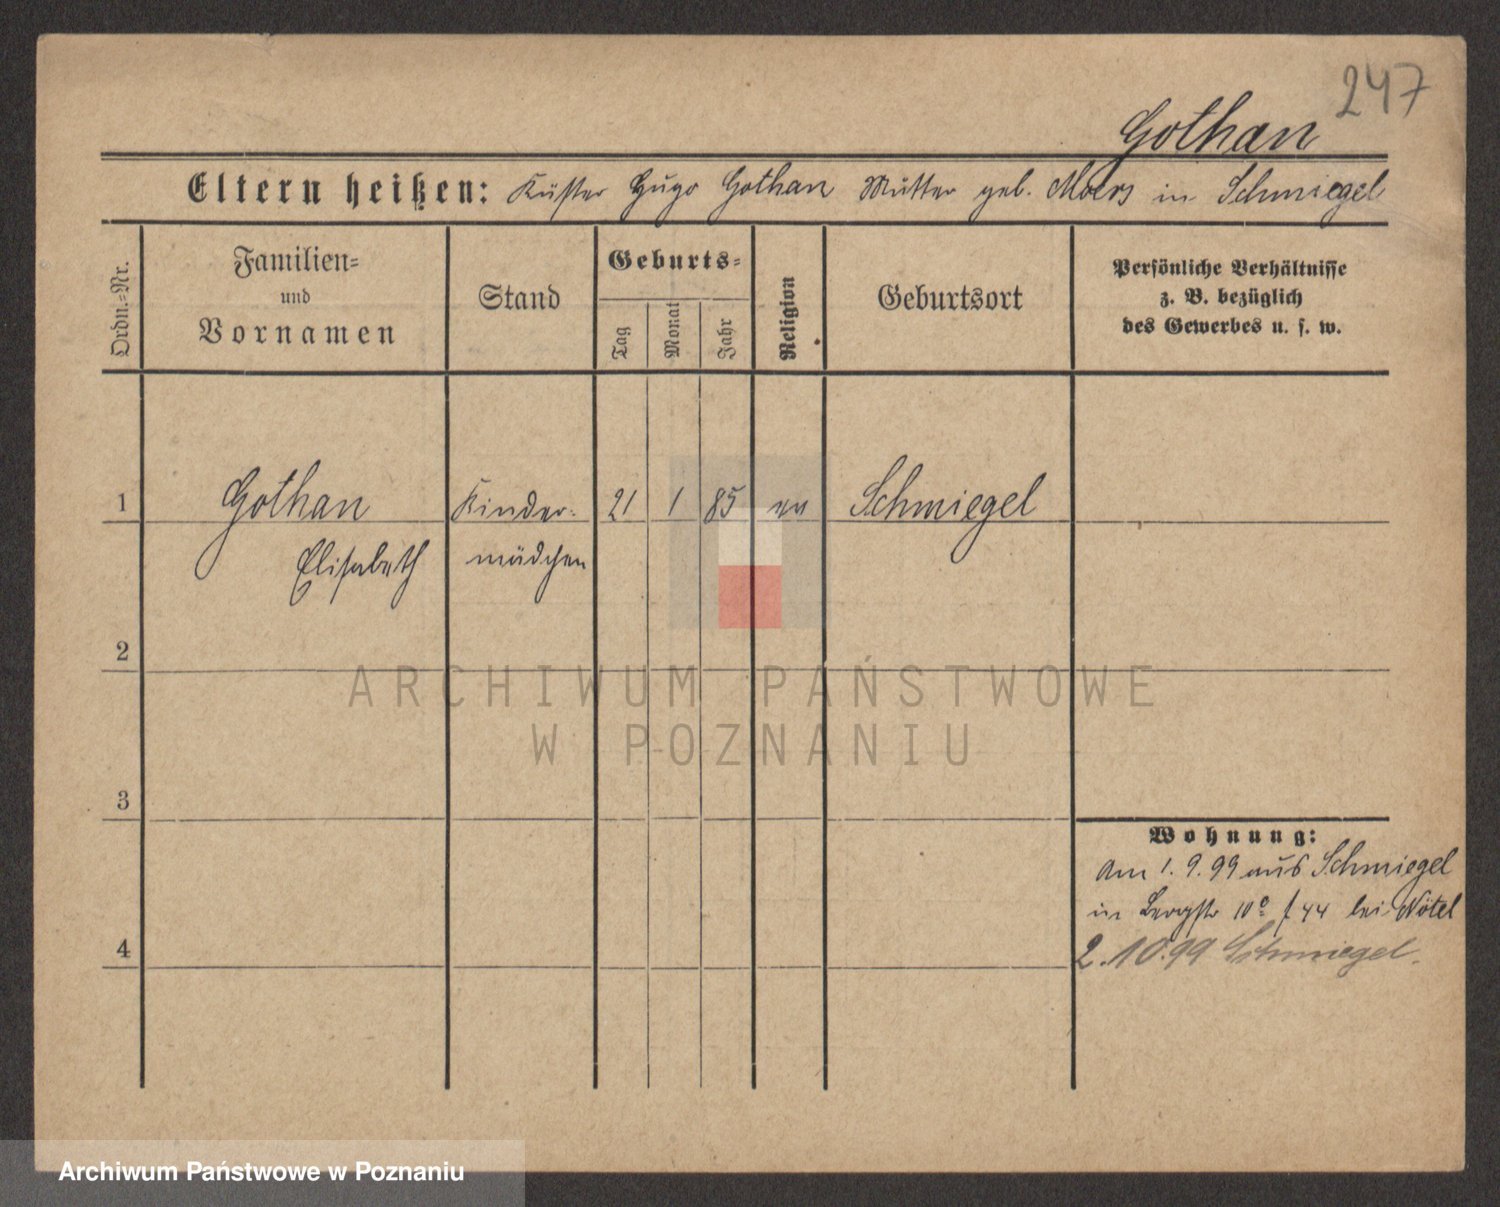 247
Gothan
Eltern heißen: Küster Hugo Gothan Mutter geb. Moers in Schmiegel
Ordn.=Nr.
Familien=
und
Vornamen
Stand
Geburts=
Tag
Monat
Jahr
Religion
Geburtsort
Persönliche Verhältnisse
z. B. bezüglich
des Gewerbes u. s. w.
1 Gothan Kinder- 21 1 85 ev Schmiegel
Elisabeth mädchen
2
ARCHIWUM PAŃSTWOWE
W POZNANIU
3
Wohnung:
Am 1.9.99 aus Schmiegel
in Bergstr 10 44 bei Nötel
4
2.10.99 Schmiegel.
Archiwum Państwowe w Poznaniu